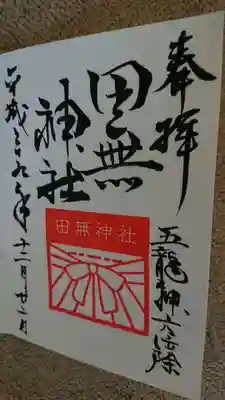 奉拝
五龍神方位除
田無
神社
田無神社
平成二十九年
十二月廿二月